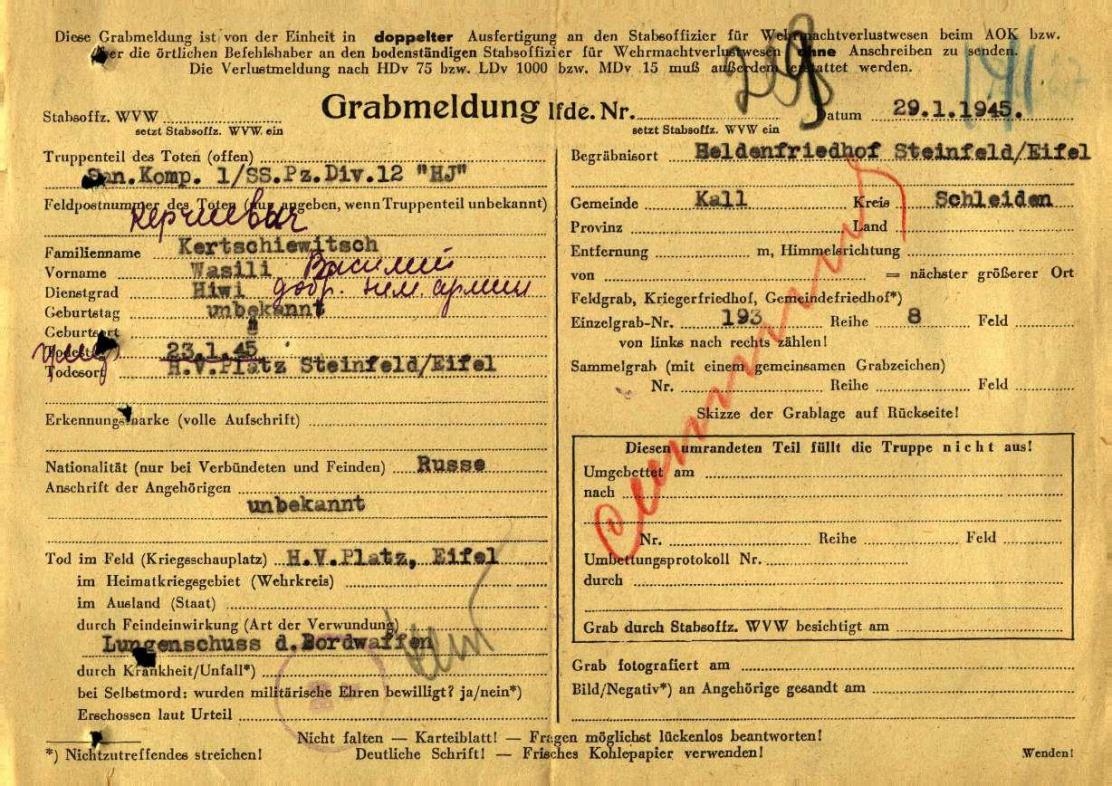 Diese Grabmeldung ist von der Einheit in doppelter Ausfertigung an den Stabsoffizier für Wehrmachtverlustwesen beim AOK bzw.
über die örtlichen Befehlshaber an den bodenständigen Stabsoffizier für Wehrmachtverlustwesen ohne Anschreiben zu senden.
Die Verlustmeldung nach HDv 75 bzw. LDv 1000 bzw. MDv 15 muß außerdem erstattet werden.
Stabsoffz. WVW
setzt Stabsoffz. WVW. ein
Grabmeldung lfde. Nr.
setzt Stabsoffz. WVW ein
Datum 29.1.1945.
Truppenteil des Toten (offen)
San.Komp. 1/SS.Pz.Div.12 "HJ"
Feldpostnummer des Toten (nur angeben, wenn Truppenteil unbekannt)
Керчиевич
Familienname Kertschiewitsch
Vorname Wasili Василий
Dienstgrad Hiwi добр. нем. армии
Geburtstag unbekannt
Geburtsort "
Todestag 23.1.45
Todesort H.V.Platz Steinfeld/Eifel
Erkennungsmarke (volle Aufschrift)
Nationalität (nur bei Verbündeten und Feinden) Russe
Anschrift der Angehörigen
unbekannt
Tod im Feld (Kriegsschauplatz) H.V.Platz, Eifel
im Heimatkriegsgebiet (Wehrkreis)
im Ausland (Staat)
durch Feindeinwirkung (Art der Verwundung)
Lungenschuss d.Bordwaffen
durch Krankheit/Unfall*)
bei Selbstmord: wurden militärische Ehren bewilligt? ja/nein*)
Erschossen laut Urteil
Begräbnisort Heldenfriedhof Steinfeld/Eifel
Gemeinde Kall Kreis Schleiden
Provinz Land
Entfernung m, Himmelsrichtung
von = nächster größerer Ort
Feldgrab, Kriegerfriedhof, Gemeindefriedhof*)
Einzelgrab-Nr. 193 Reihe 8 Feld
von links nach rechts zählen!
Sammelgrab (mit einem gemeinsamen Grabzeichen)
Nr. Reihe Feld
Skizze der Grablage auf Rückseite!
Diesen umrandeten Teil füllt die Truppe nicht aus!
Umgebettet am
nach
Nr. Reihe Feld
Umbettungsprotokoll Nr.
durch
Grab durch Stabsoffz. WVW besichtigt am
Grab fotografiert am
Bild/Negativ*) an Angehörige gesandt am
Nicht falten — Karteiblatt! — Fragen möglichst lückenlos beantworten!
*) Nichtzutreffendes streichen! Deutsche Schrift! — Frisches Kohlepapier verwenden! Wenden!